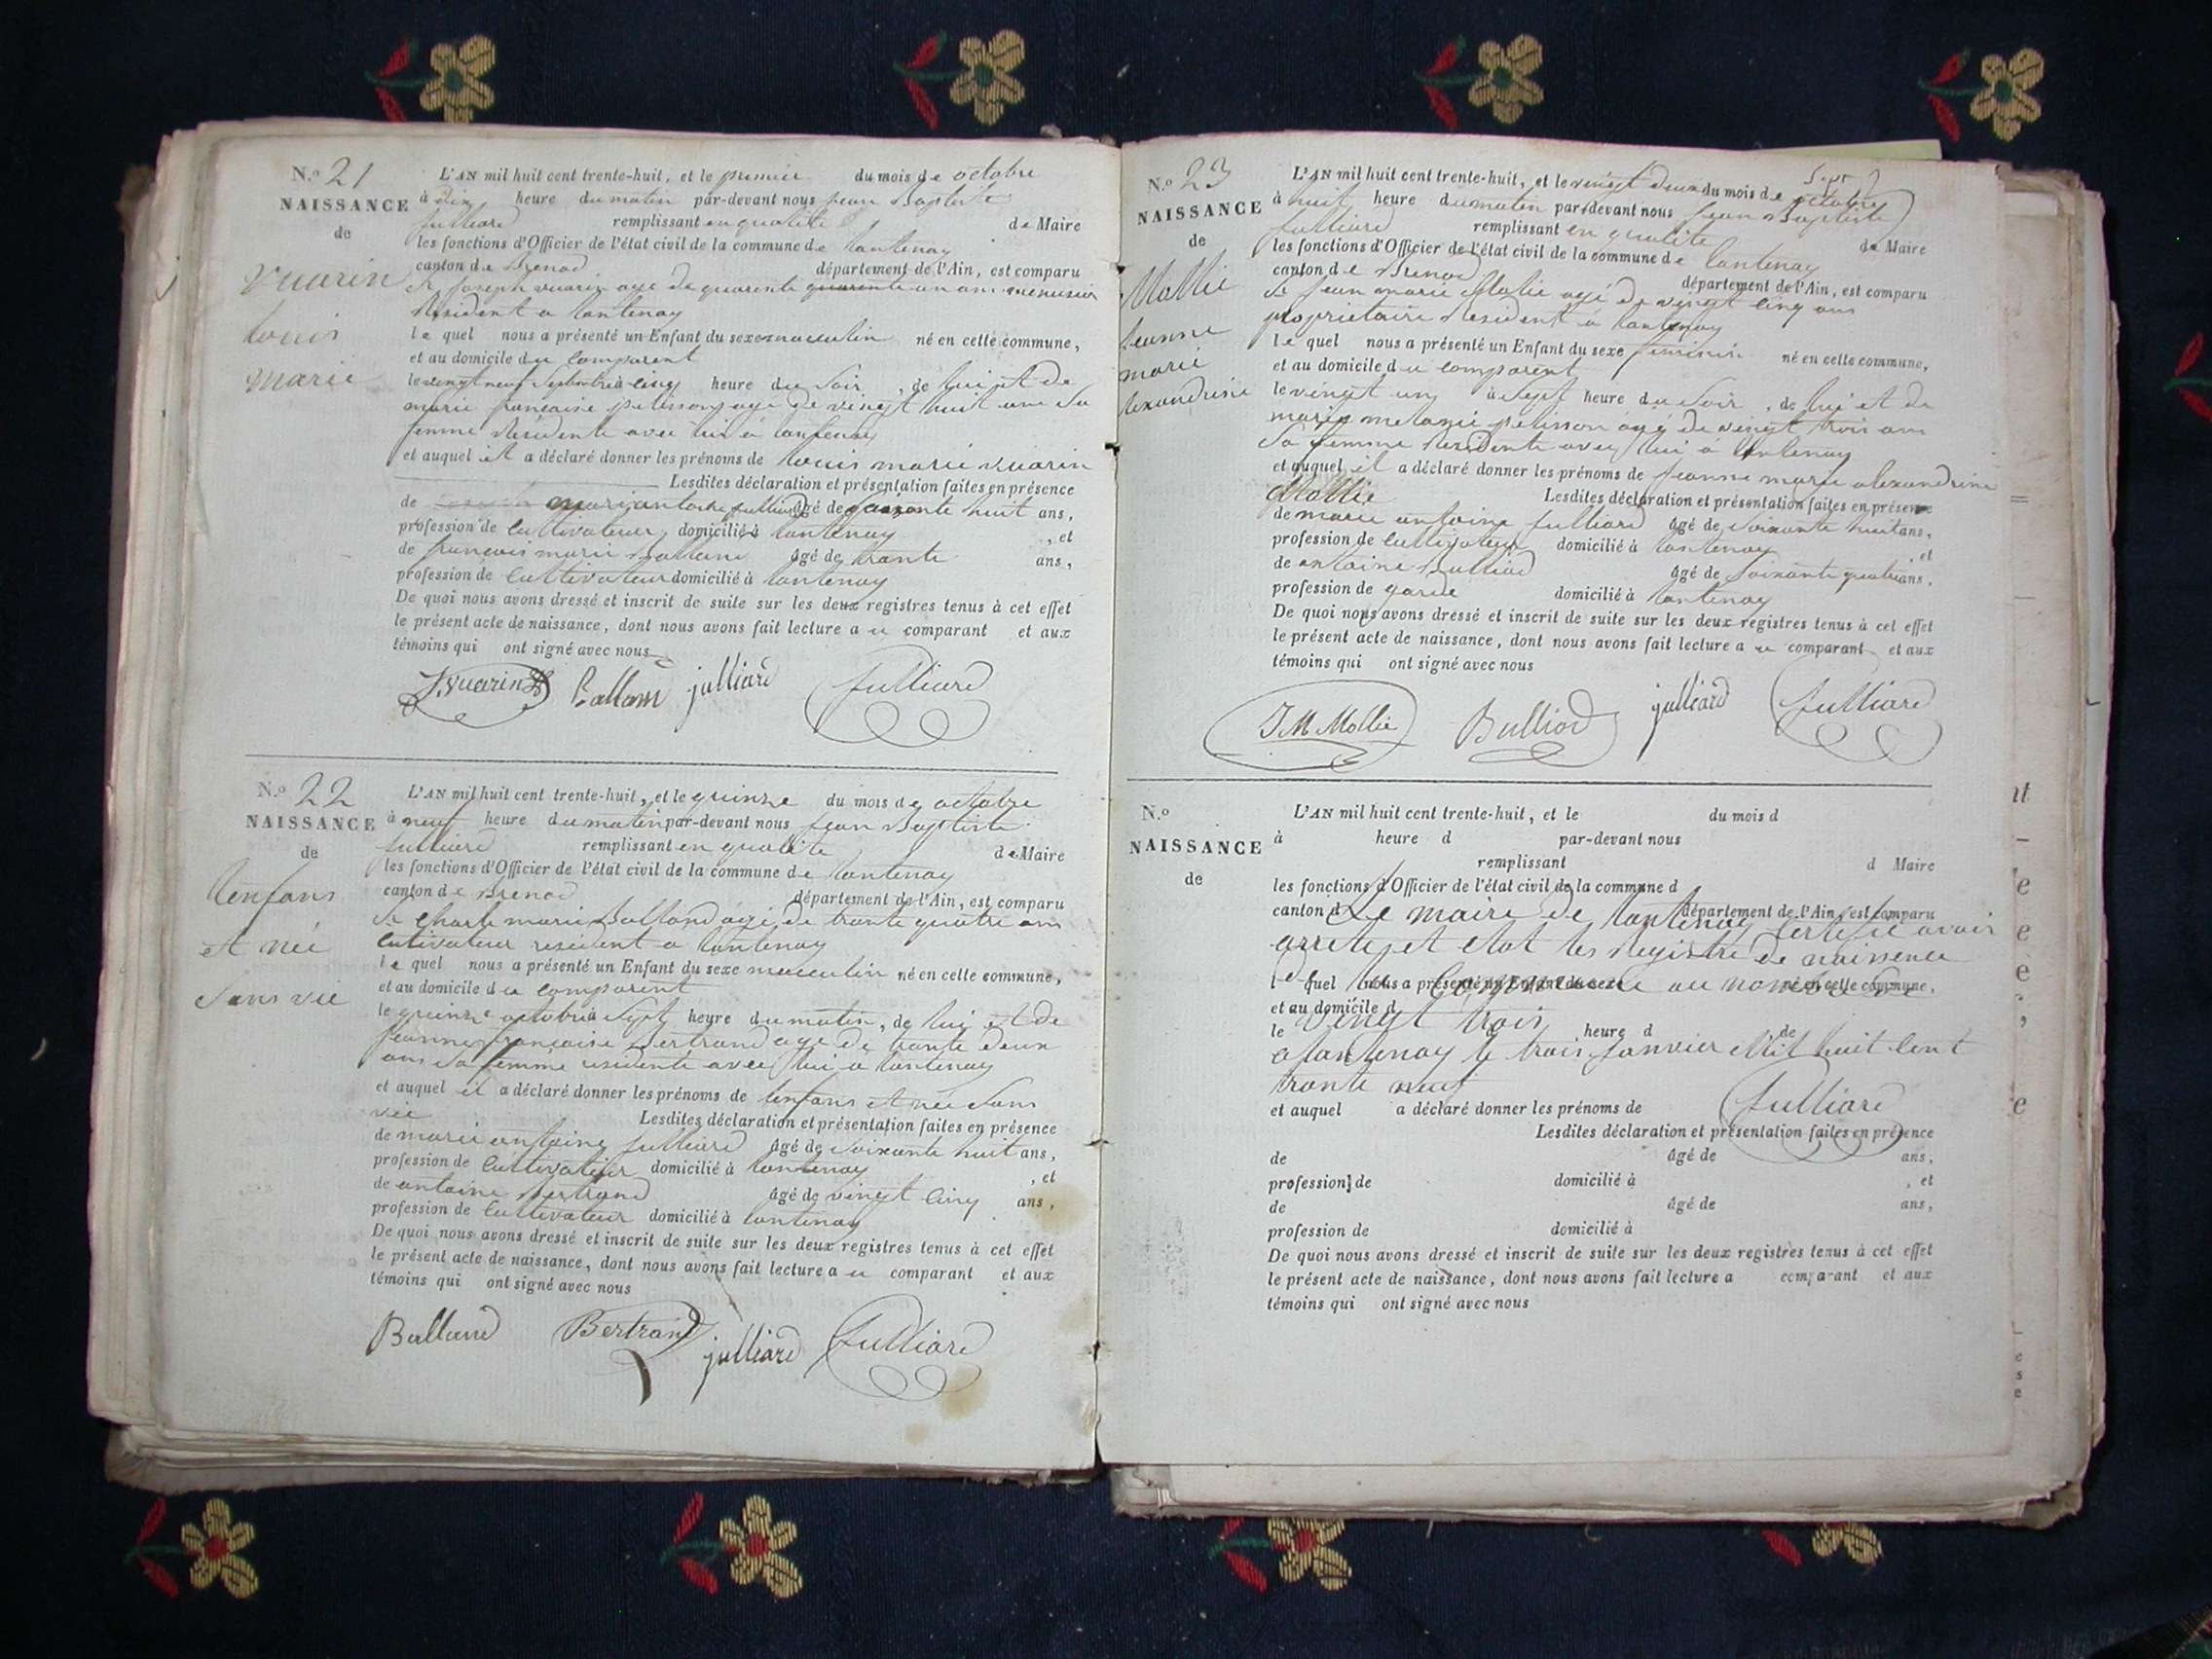 N.o 21
NAISSANCE
de
Vuarin
Louis
Marie
L'AN mil huit cent trente-huit, et le premier du mois de octobre
à dix heure du matin par-devant nous jean Baptiste
julliard remplissant en qualite de Maire
les fonctions d'Officier de l'état civil de la commune de lantenay
canton de Brenod département de l'Ain, est comparu
Sr joseph vuarin age de quarente quarente un ans menusier
Résident a lantenay
le quel nous a présenté un Enfant du sexe masculin né en cette commune,
et au domicile du comparent
le vingt neuf Septembre à cinq heure du Soir, de lui et de
marie francoise pelisson age de vingt huit ans Sa
femme Résidente avec lui a lantenay
et auquel il a déclaré donner les prénoms de louis marie vuarin
Lesdites déclaration et présentation faites en présence
de marie antoine julliard âgé de Soixante huit ans,
profession de Cultivateur, domicilié à lantenay, et
de francois marie Balland âgé de trante ans,
profession de Cultivateur domicilié à lantenay
De quoi nous avons dressé et inscrit de suite sur les deux registres tenus à cet effet
le présent acte de naissance, dont nous avons fait lecture au comparant et aux
témoins qui ont signé avec nous
J. Vuarin Balland julliard Julliard
N.o 22
NAISSANCE
de
lenfans
et née
Sans vie
L'AN mil huit cent trente-huit, et le quinze du mois de octobre
à neuf heure du matin par-devant nous jean Baptiste
julliard remplissant en qualite de Maire
les fonctions d'Officier de l'état civil de la commune de lantenay
canton de Brenod département de l'Ain, est comparu
Sr Charle marie Balland âgé de trante quatre ans
cutivateur resident a lantenay
le quel nous a présenté un Enfant du sexe masculin né en cette commune,
et au domicile du comparent
le quinze octobre à Sept heure du matin, de lui et de
jeanne francoise Bertrand age de trante deux
ans Sa femme residente avec lui a lantenay
et auquel il a déclaré donner les prénoms de lenfans et née Sans
vie Lesdites déclaration et présentation faites en présence
de marie antoine julliard âgé de Soixante huit ans,
profession de Cultivateur domicilié à lantenay, et
de antoine Bertrand âgé de vingt cinq ans,
profession de Cultivateur domicilié à lantenay
De quoi nous avons dressé et inscrit de suite sur les deux registres tenus à cet effet
le présent acte de naissance, dont nous avons fait lecture au comparant et aux
témoins qui ont signé avec nous
Balland Bertrand julliard Julliard
N.o 23
NAISSANCE
de
Mollie
jeanne
marie
lexandrine
L'AN mil huit cent trente-huit, et le vingt deux du mois de octobre
à huit heure du matin par-devant nous jean Baptiste
julliard remplissant en qualite de Maire
les fonctions d'Officier de l'état civil de la commune de lantenay
canton de Brenod département de l'Ain, est comparu
Sr jean marie Molie agé de vingt cinq ans
proprietaire Resident a lantenay
le quel nous a présenté un Enfant du sexe feminin né en cette commune,
et au domicile du comparent
le vingt un à Sept heure du Soir, de lui et de
marie melanie pelisson âgé de vingt trois ans
Sa femme Residente avec lui a lantenay
et auquel il a déclaré donner les prénoms de jeanne marie alexandrine
Mollie Lesdites déclaration et présentation faites en présence
de marie antoine julliard âgé de Soixante huit ans,
profession de Cultivateur domicilié à lantenay, et
de antoine Bulliod âgé de Soixante quatre ans,
profession de garde domicilié à lantenay
De quoi nous avons dressé et inscrit de suite sur les deux registres tenus à cet effet
le présent acte de naissance, dont nous avons fait lecture au comparant et aux
témoins qui ont signé avec nous
J M Mollie Bulliod julliard Julliard
N.o
NAISSANCE
de
L'AN mil huit cent trente-huit, et le du mois d
à heure d par-devant nous
remplissant d Maire
les fonctions d'Officier de l'état civil de la commune d
canton d département de l'Ain, est comparu
Le maire de lantenay Certifie avoir
arrete et clot les Registre de naissence
l quel nous a présenté un Enfant du sexe né en cette commune,
au nombre de
et au domicile d
vingt trois
le heure d de
a lantenay le trois janvier Mil huit cent
trante neuf
et auquel a déclaré donner les prénoms de
Julliard
Lesdites déclaration et présentation faites en présence
de âgé de ans,
profession de domicilié à , et
de âgé de ans,
profession de domicilié à
De quoi nous avons dressé et inscrit de suite sur les deux registres tenus à cet effet
le présent acte de naissance, dont nous avons fait lecture a comparant et aux
témoins qui ont signé avec nous